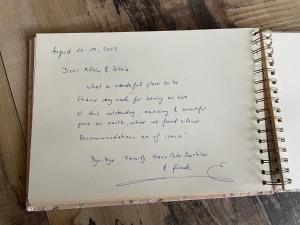 Dear
What a wonderful place to be!
Thanks very much for having us here
at this outstanding, amazing & beautiful
place on earth, where we found silence
Recommendations are of course!
Bye-bye Family Hans-Peter
& friends